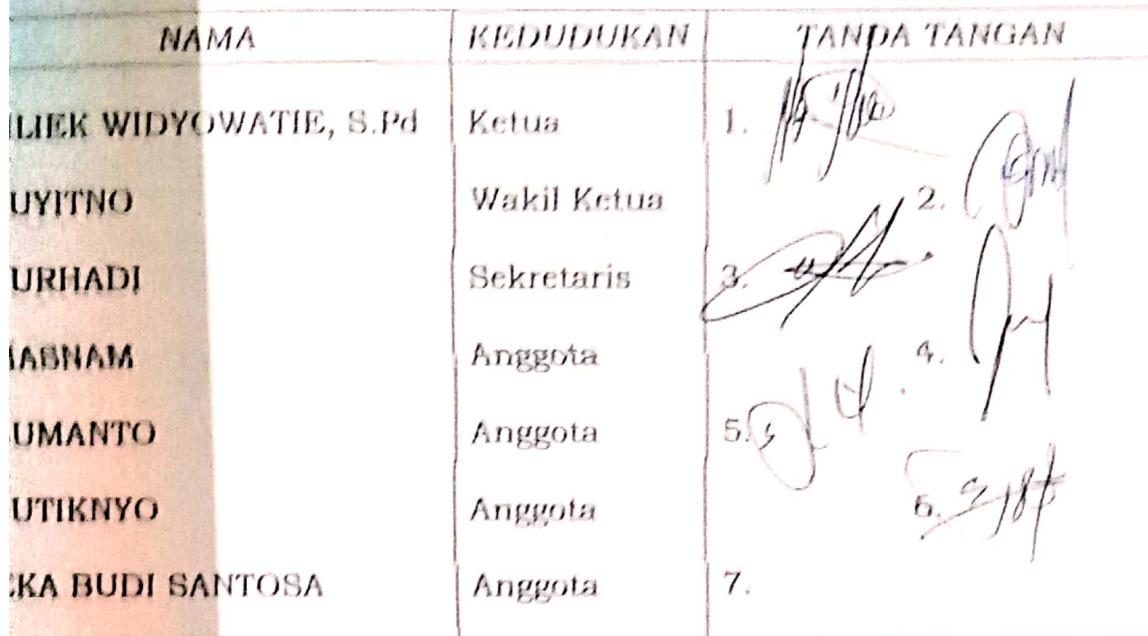 NAMA KEDUDUKAN TANDA TANGAN
LIEK WIDYOWATIE, S.Pd Ketua 1.
UYITNO Wakil Ketua 2.
URHADI Sekretaris 3.
ASNAM Anggota 4.
UMANTO Anggota 5.
UTIKNYO Anggota 6.
KA BUDI SANTOSA Anggota 7.